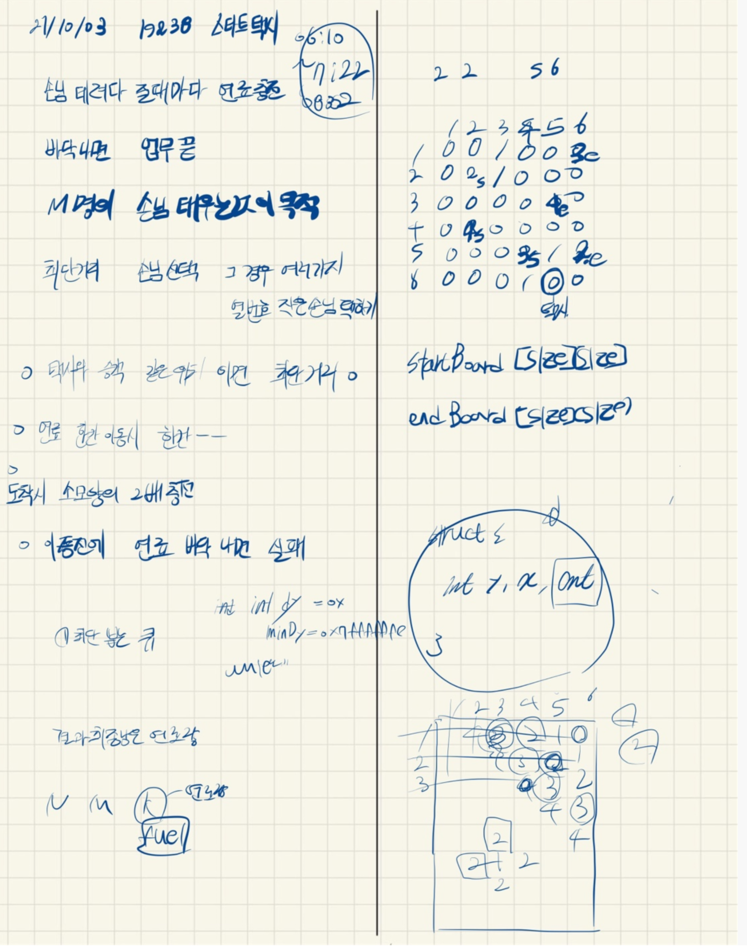 21/10/03 19238 스타트 택시
06:10
~7:22
손님 데려다 줄때마다 연료충전
바닥나면 업무 끝
M명의 손님 태우는 것이 목적
최단거리 손님 선택 그 경우 여러가지
열번호 작은 손님 택하기
o 택시와 승객 같은 위치 이면 최단거리 0
o 연료 한칸 이동시 한칸--
o
도착시 소모량의 2배 충전
o 이동전에 연료 바닥 나면 실패
int dy = 0x
① 최단 넣는 큐
결과 최종남은 연료량
N M K - 연료량
fuel
2 2 5 6
1 2 3 4 5 6
1 0 0 1 0 0 3e
2 0 2s 1 0 0 0
3 0 0 0 0 4e 0
4 0 4s 0 0 0 0
5 0 0 0 3s 1 2e
6 0 0 0 1 0 0
택시
startBoard [size][size]
endBoard [size][size]
struct {
int y, x, cnt
}
1 2 3 4 5 6
1 2 1 0
2 3
3 3 2
4 3
2 4
2 1 2
2